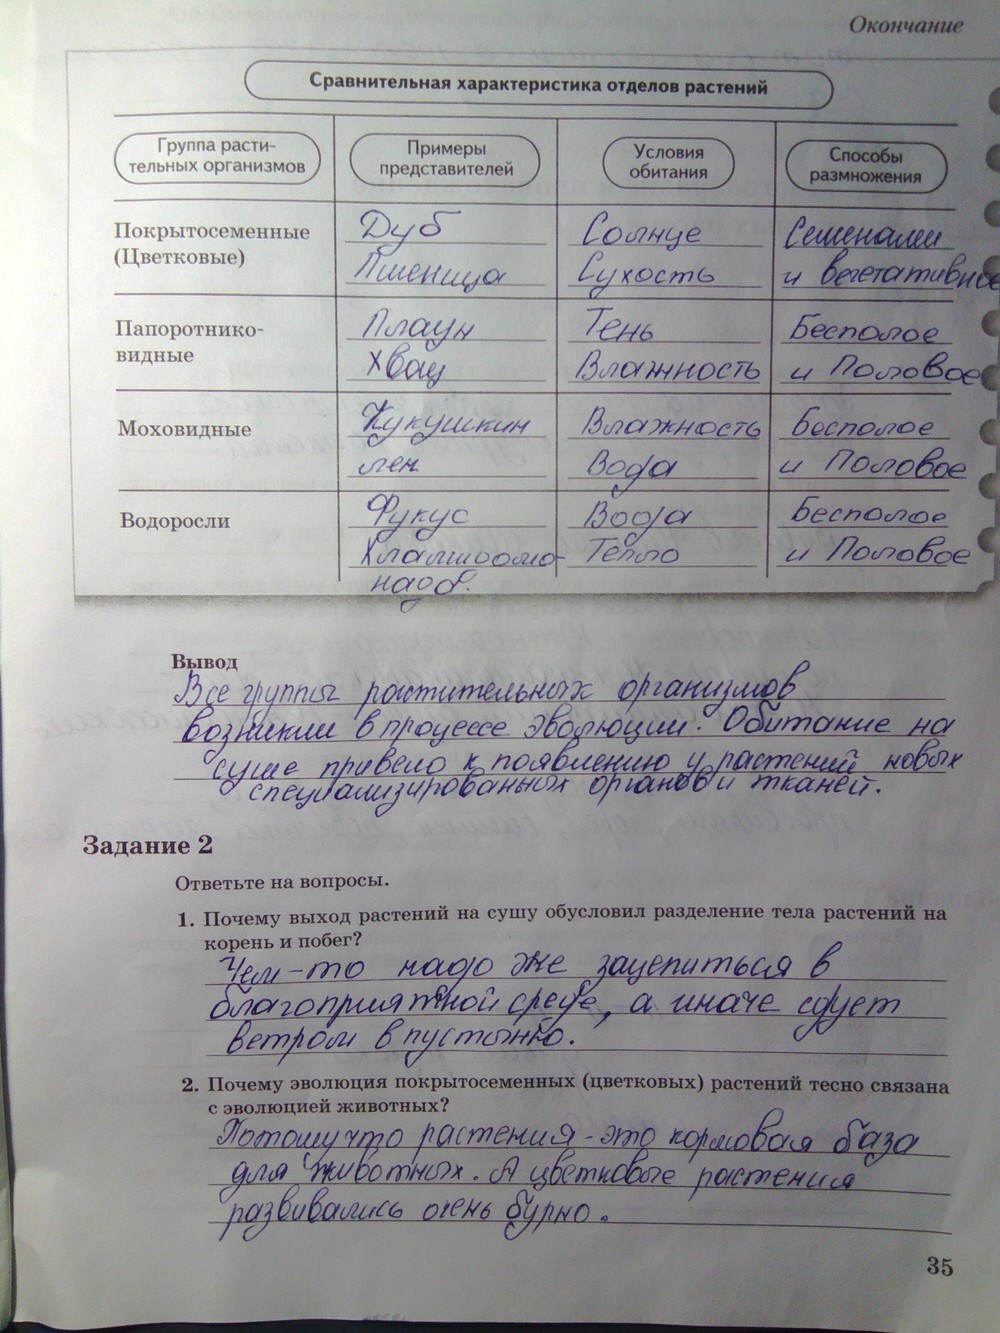 Окончание
Сравнительная характеристика отделов растений
Группа расти-
тельных организмов
Примеры
представителей
Условия
обитания
Способы
размножения
Покрытосеменные
(Цветковые)
Дуб
Пшеница
Солнце
Сухость
Семенами
и вегетативное
Папоротнико-
видные
Плаун
Хвощ
Тень
Влажность
Бесполое
и Половое
Моховидные
Кукушкин
лен
Влажность
Вода
Бесполое
и Половое
Водоросли
Фукус
Хламидомо-
над.
Вода
Тепло
Бесполое
и Половое
Вывод
Все группы растительных организмов
возникли в процессе эволюции. Обитание на
суше привело к появлению у растений новых
специализированных органов и тканей.
Задание 2
Ответьте на вопросы.
1. Почему выход растений на сушу обусловил разделение тела растений на
корень и побег?
Чем-то надо же зацепиться в
благоприятной среде, а иначе сдует
ветром в пустыню.
2. Почему эволюция покрытосеменных (цветковых) растений тесно связана
с эволюцией животных?
Потому что растения - это кормовая база
для животных. А цветковые растения
развивались очень бурно.
35